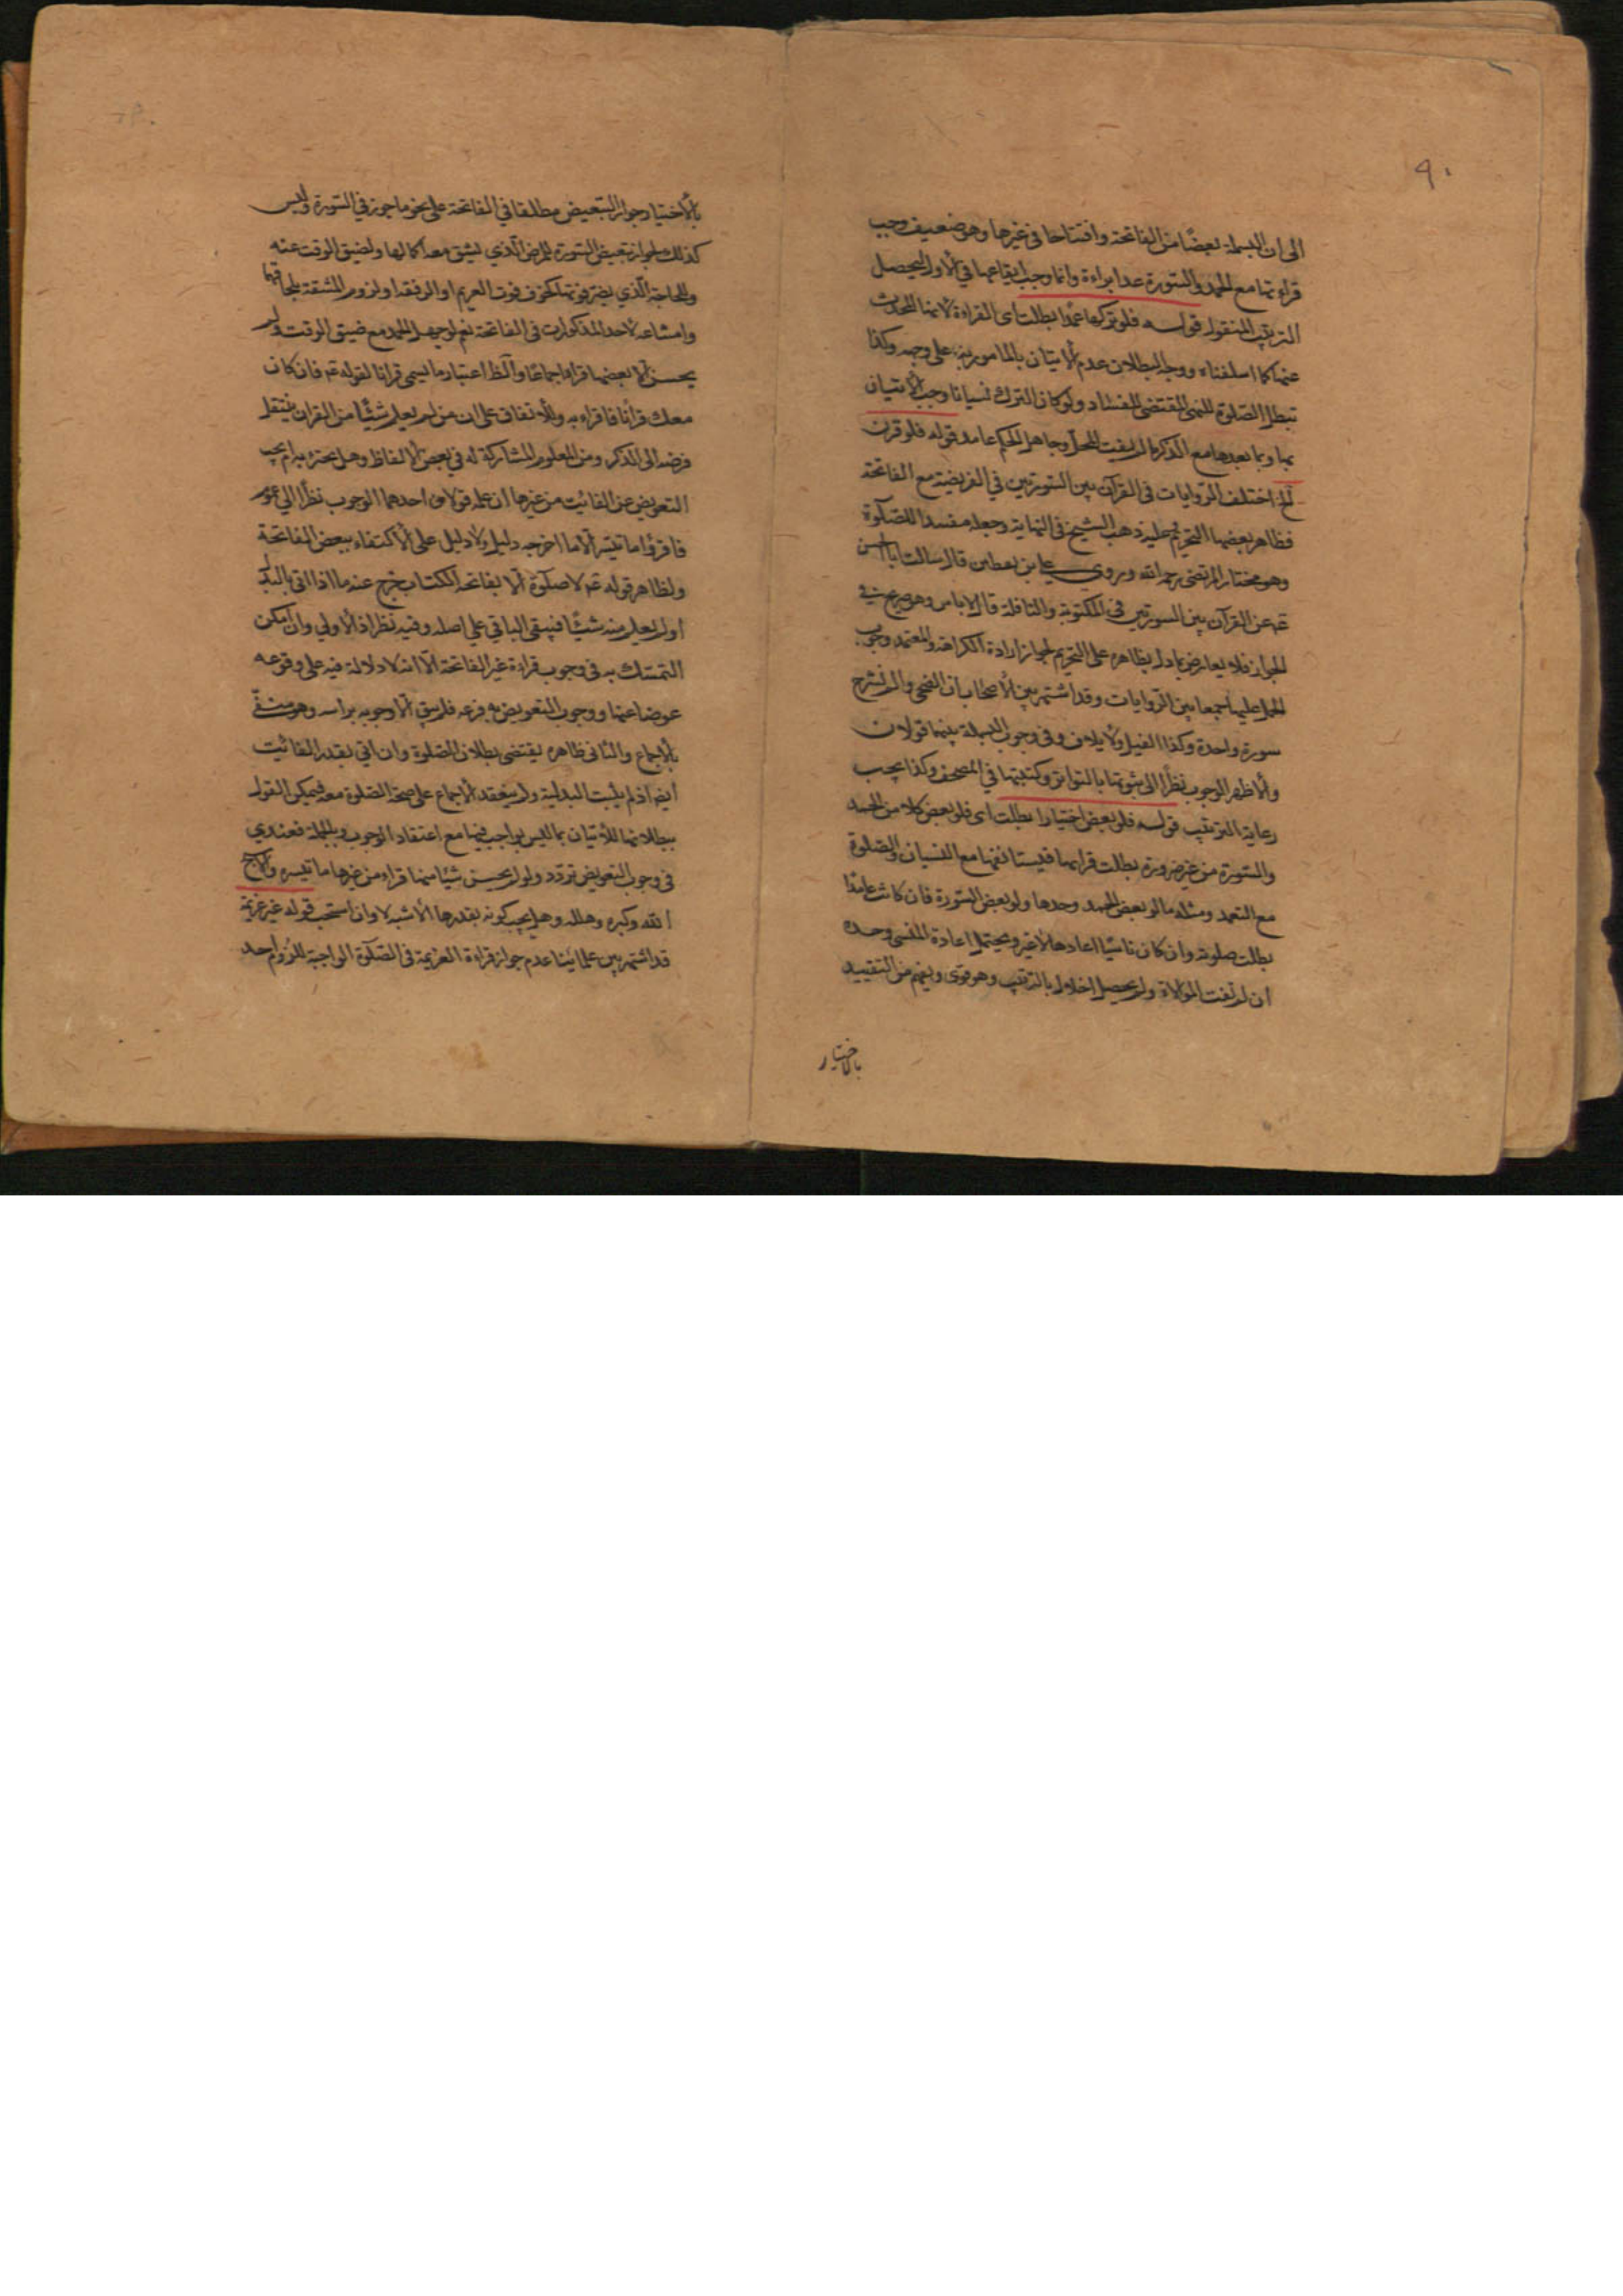 ٩٠
الى ان البسملة بعضًا من الفاتحة وافتتاحا فى غيرها وهو ضعيف وجب
قراءتها مع الحمد والسورة عدا براءة وانما وجب ايقاعها فى الأول ليحصل
الترتيب المنقول قوله فلو تركها عمدا بطلت اى القراءة لانها المحدث
عنها كما اسلفناه ووجه البطلان عدم الأتيان بالمأمور به على وجهه وكذا
تبطل الصلوة للنهى المقتضى للفساد ولو كان الترك نسيانا وجب الأتيان
بها وبما بعدها مع الذكر ما لم يفت المحل وجاهل الحكم عامد قوله فلو قرن
الخ اختلف الروايات فى القرآن بين السورتين فى الفريضة مع الفاتحة
فظاهر بعضها التحريم عليه ذهب الشيخ فى النهاية وجعله مفسدا للصلوة
وهو مختار المرتضى رحمه الله وروى على بن يقطين قال سالت ابا الحسن
عه عن القرآن بين السورتين فى المكتوبة والنافلة قال لا باس وهو صريح فى
الجواز فلا يعارض بما دل بظاهره على التحريم لجواز ارادة الكراهة والمعتمد وجوب
الحمل عليها جمعا بين الروايات وقد اشتهر بين الأصحاب ان الضحى والم نشرح
سورة واحدة وكذا الفيل ولايلاف وفى وجوب البسملة بينهما قولان
والأظهر الوجوب نظرا الى ثبوتها بالتواتر وكتبتها فى المصحف وكذا يجب
رعاية الترتيب قوله فلو بعض اختيارا بطلت اى فلو بعض كلا من الحمد
والسورة من غير ضرورة بطلت قرائتها فيستانفها مع النسيان والصلوة
مع التعمد ومثله ما لو بعض الحمد وحدها ولو بعض السورة فان كانت عامدا
بطلت صلوته وان كان ناسيًا اعادها لا غير ويحتمل اعادة المنسى وحده
ان لم تفت الموالاة ولم يحصل اخلال بالترتيب وهو قوى ويفهم من التقييد
بالاختيار
بالأختيار جواز التبعيض مطلقا فى الفاتحة على نحو ما جوز فى السورة وليس
كذلك لجواز تبعيض السورة للمرض الذي يشق معه اكمالها ولضيق الوقت عنه
وللحاجة الذي يضر فوتها كخوف فوت الغريم او الرفقة او لزوم المشقة بلحاقها
وامتناعه لاحد المذكورات فى الفاتحة نعم لو جهل الحمد مع ضيق الوقت ولم
يحسن الا بعضها قراه اجماعًا والظ اعتبار ما يسمى قرانا لقوله عه فان كان
معك قرأنا فاقراء به وللأتفاق على ان من لم يعلم شيئًا من القران ينتقل
فرضه الى الذكر ومن المعلوم المشاركة له فى بعض الالفاظ وهل يجتزء به ام يجب
التعويض عن الفائت من غيرها ان علمه قولان احدهما الوجوب نظرا الى عموم
فاقرؤا ما تيسر الا ما اخرجه دليل ولا دليل على الأكتفاء ببعض الفاتحة
ولظاهر قوله عه لا صلوة الا بفاتحة الكتاب خرج عنه ما اذا اتى بالبدل
او لم يعلم منه شيئًا فيبقى الباقى على اصله وفيه نظر اذ الأولى وان امكن
التمسك به فى وجوب قراءة غير الفاتحة الا انه لا دلالة فيه على وقوعه
عوضا عنها ووجوب التعويض به فرعه فلم يبق الا وجوبه براسه وهو منفى
بالأجماع والثانى ظاهره يقتضى بطلان الصلوة وان اتى بقدر الفائت
ايضا اذ لم يثبت البدلية ولم ينعقد الأجماع على صحة الصلوة معه فيمكن القول
ببطلانها للأتيان بما ليس بواجب فيها مع اعتقاد الوجوب وبالجملة فعندي
فى وجوب التعويض تردد ولو لم يحسن شيئا منها قراء من غيرها ما تيسر والا سبح
الله وكبره وهلله وهل يجب كونه بقدرها الأشبه لا وان استحب قوله غير عزيمة
قد اشتهر بين علمائنا عدم جواز قراءة العزيمة فى الصلوة الواجبة للزوم احد